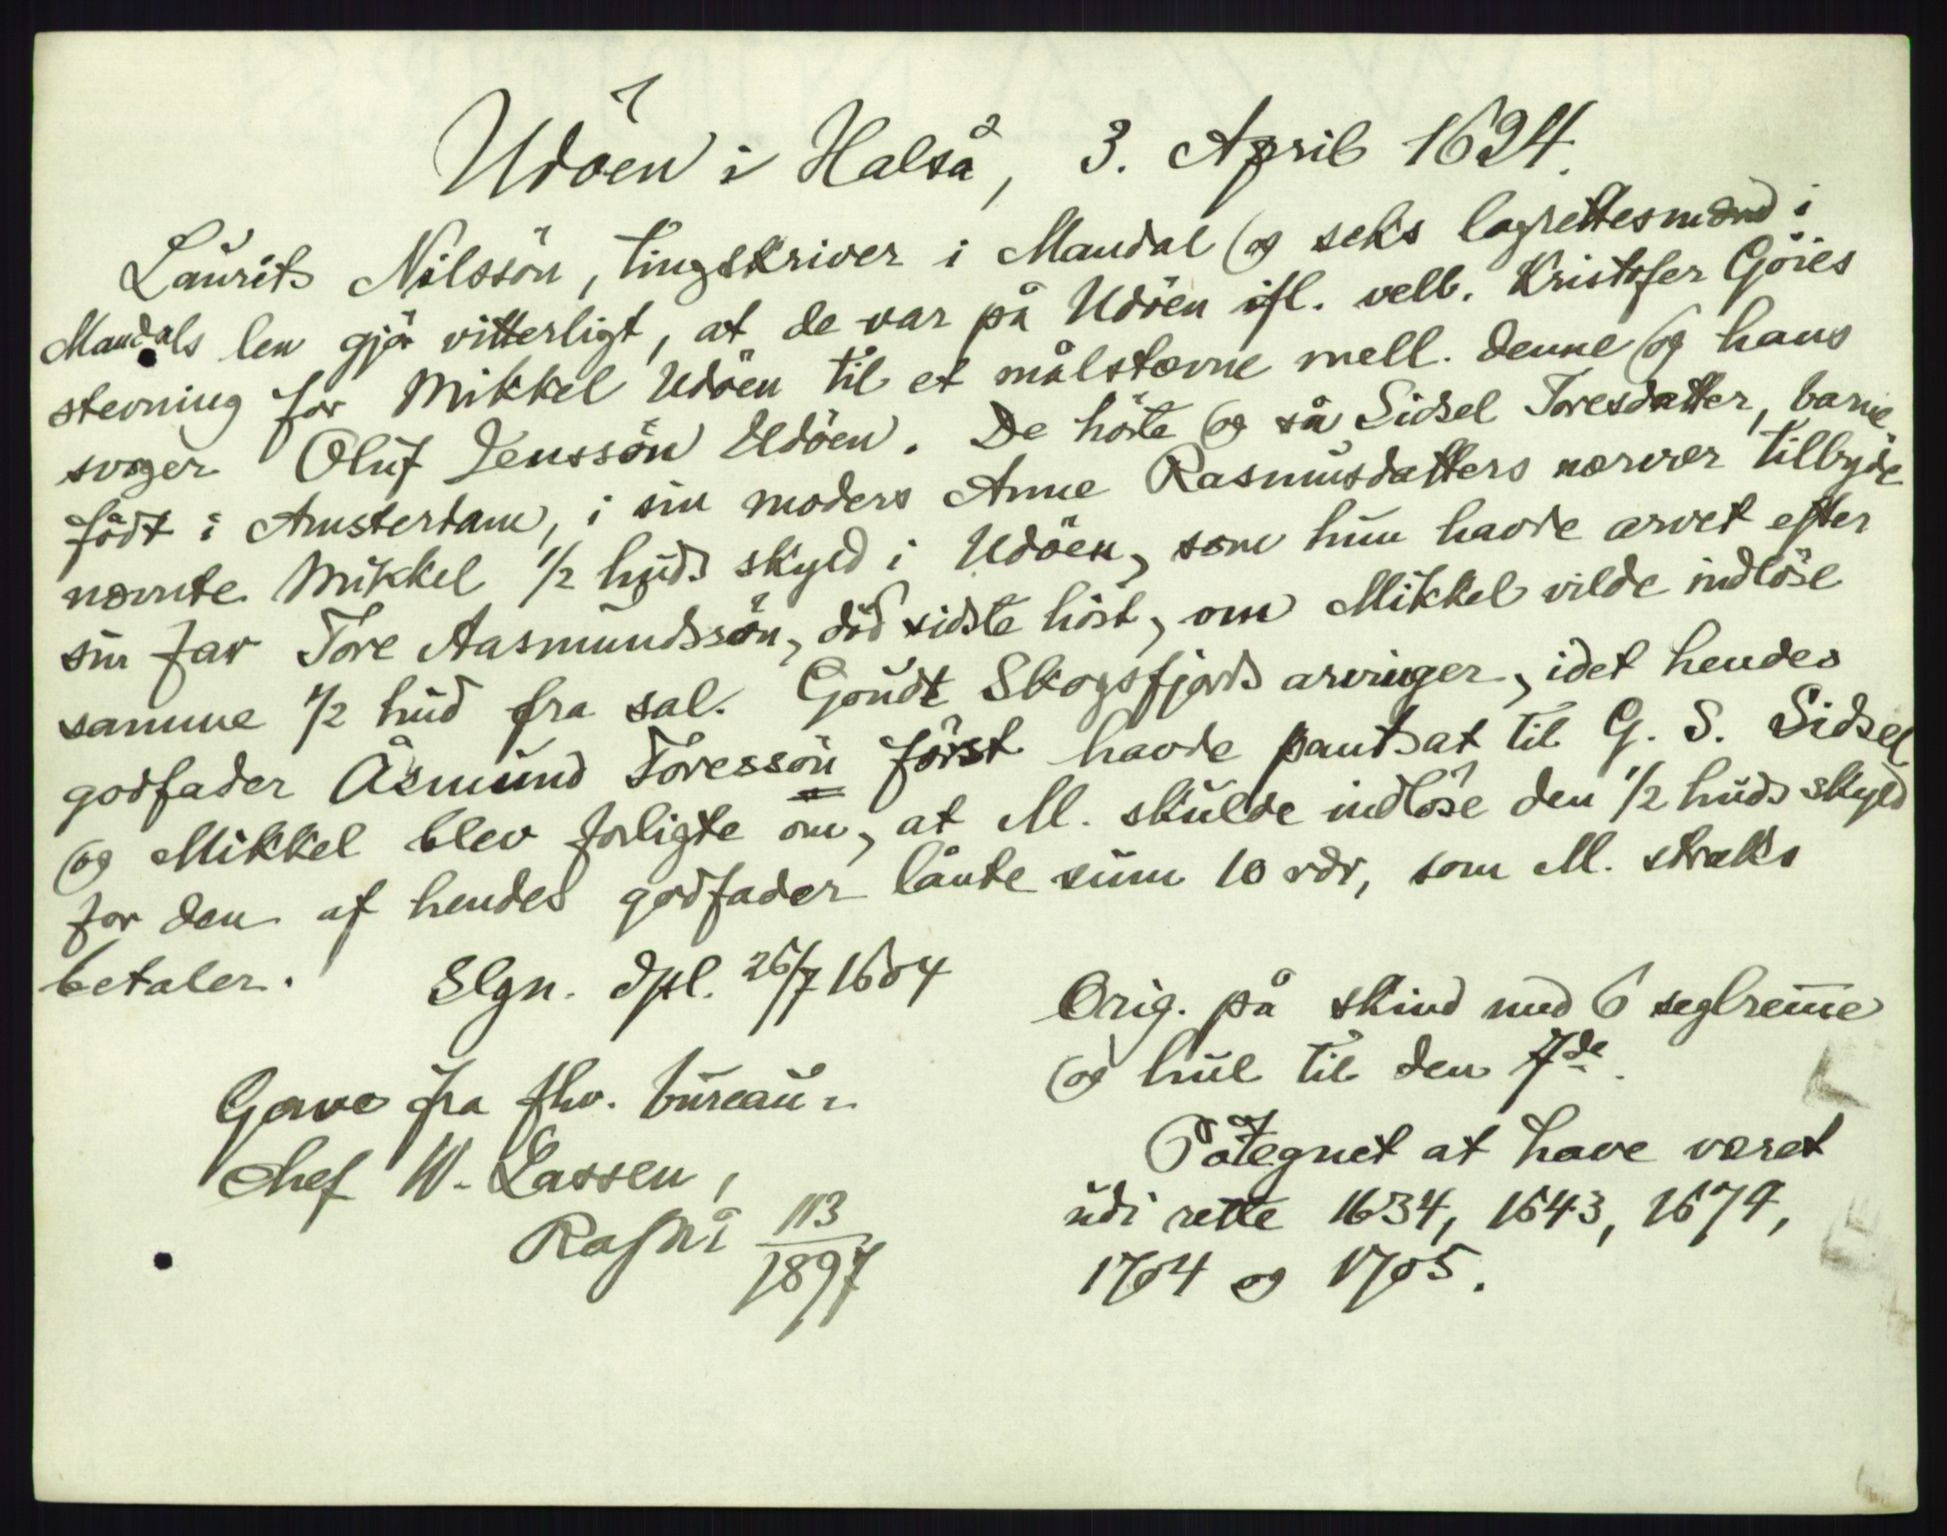 Udöen i Halså, 3. April 1624.
Laurits Nilssön, tingskriver i Mandal og seks lagrettesmænd i
Mandals len gjör vitterligt, at de var på Udöen ifl. velb. Kristofer Göies
stevning for Mikkel Udöen til et målstævne mell. denne og hans
svoger Oluf Jenssön Udöen. De hörte og så Sidsel Toresdatter, barne
födt i Amsterdam, i sin moders Anne Rasmusdatters nærvær tilbyde
nævnte Mikkel 1/2 huds skyld i Udöen, som hun havde arvet efter
sin far Tore Aasmundssön, död sidste höst, om Mikkel vilde indlöse
samme 1/2 hud fra sal. Goudt Skogsfjords arvinger, idet hendes
godfader Åsmund Toressön först havde pantsat til G. S. Sidsel
og Mikkel blev forligte om, at M. skulde indlöse den 1/2 huds skyld
for den af hendes godfader lånte sum 10 rdr, som M. straks
betaler.
Slgn. dpl. 26/7 1604
Gave fra fhv. bureau-
chef W. Lassen,
113
1897
Orig. på skind med 6 seglremme
og hul til den 7de.
Påtegnet at have været
udi rette 1634, 1643, 1674,
1704 og 1705.